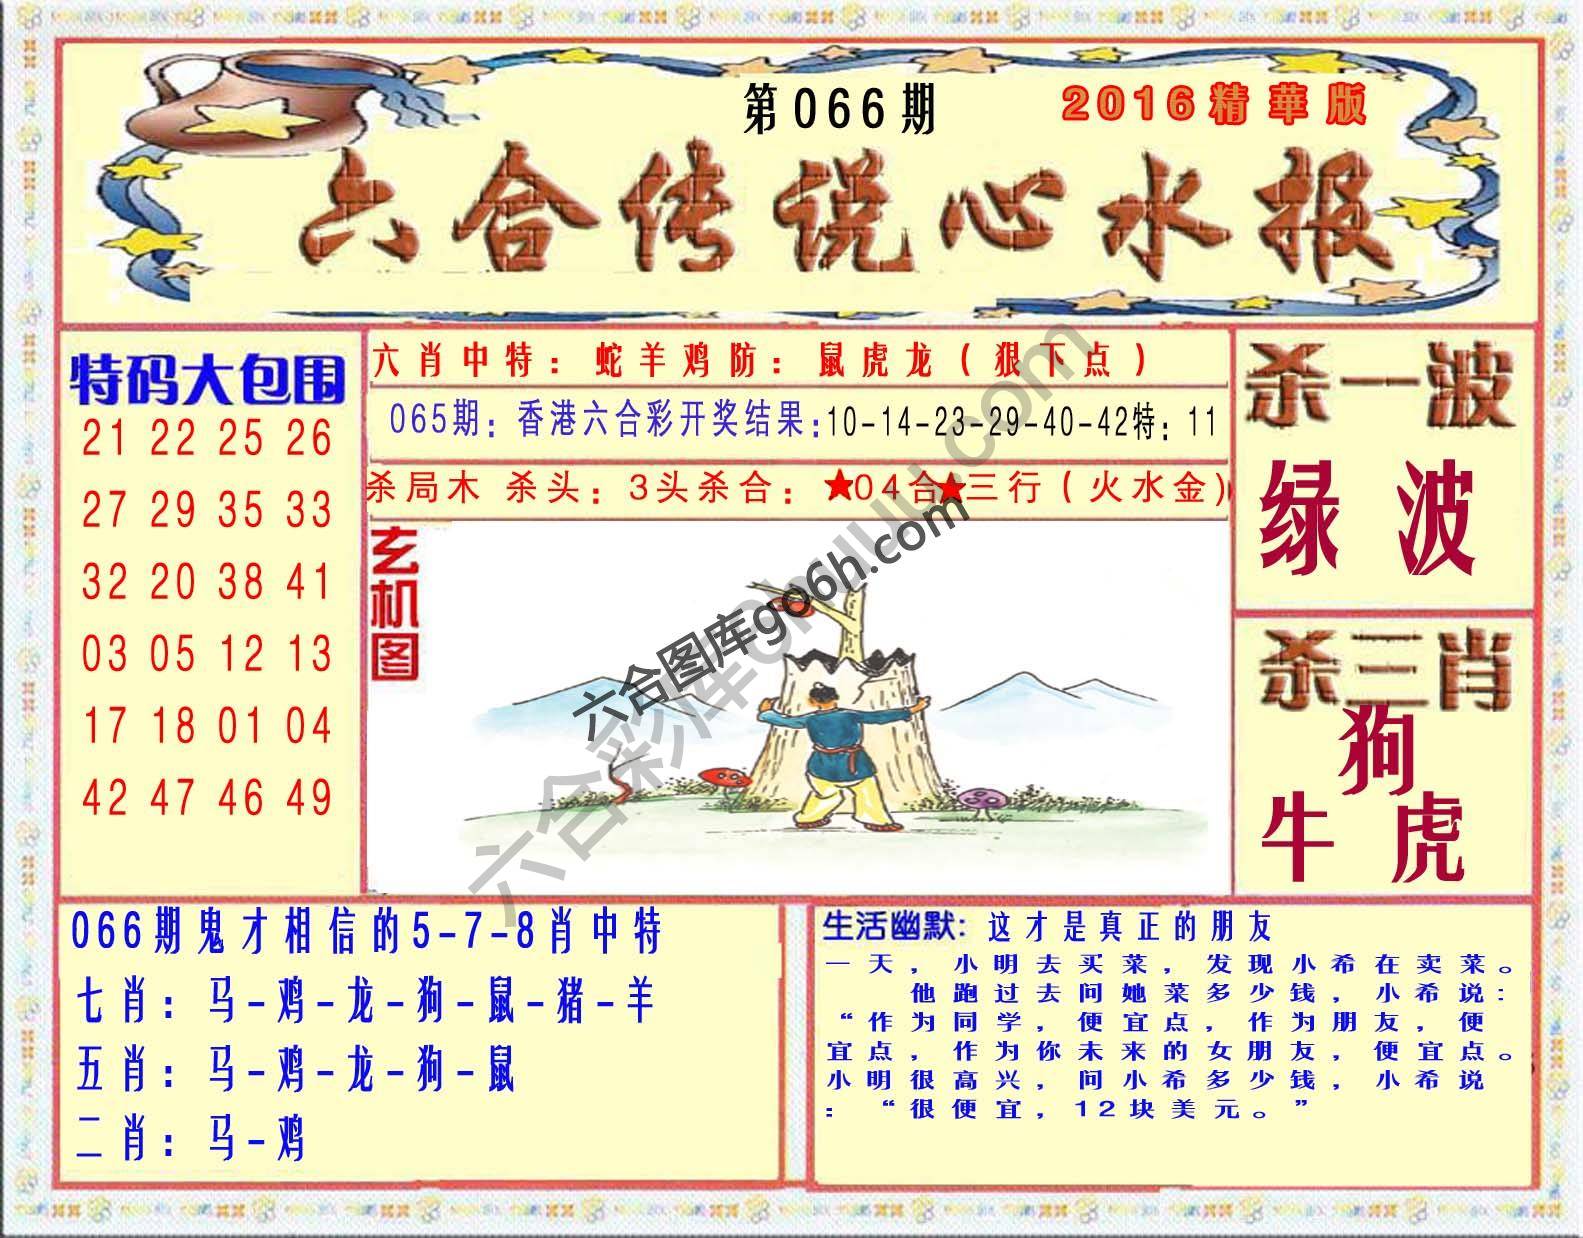 第066期
2016精華版
六合传说心水报
特码大包围
21 22 25 26
27 29 35 33
32 20 38 41
03 05 12 13
17 18 01 04
42 47 46 49
六肖中特：蛇羊鸡防：鼠虎龙（狠下点）
065期：香港六合彩开奖结果：10-14-23-29-40-42特：11
杀局木 杀头：3头杀合：★04合★三行（火水金）
玄机图
杀一波
绿波
杀三肖
狗
牛 虎
六合图库go6h.com
066期鬼才相信的5-7-8肖中特
七肖：马-鸡-龙-狗-鼠-猪-羊
五肖：马-鸡-龙-狗-鼠
二肖：马-鸡
生活幽默：这才是真正的朋友
一天，小明去买菜，发现小希在卖菜。
他跑过去问她菜多少钱，小希说：
“作为同学，便宜点，作为朋友，便
宜点，作为你未来的女朋友，便宜点。
小明很高兴，问小希多少钱，小希说
：“很便宜，12块美元。”